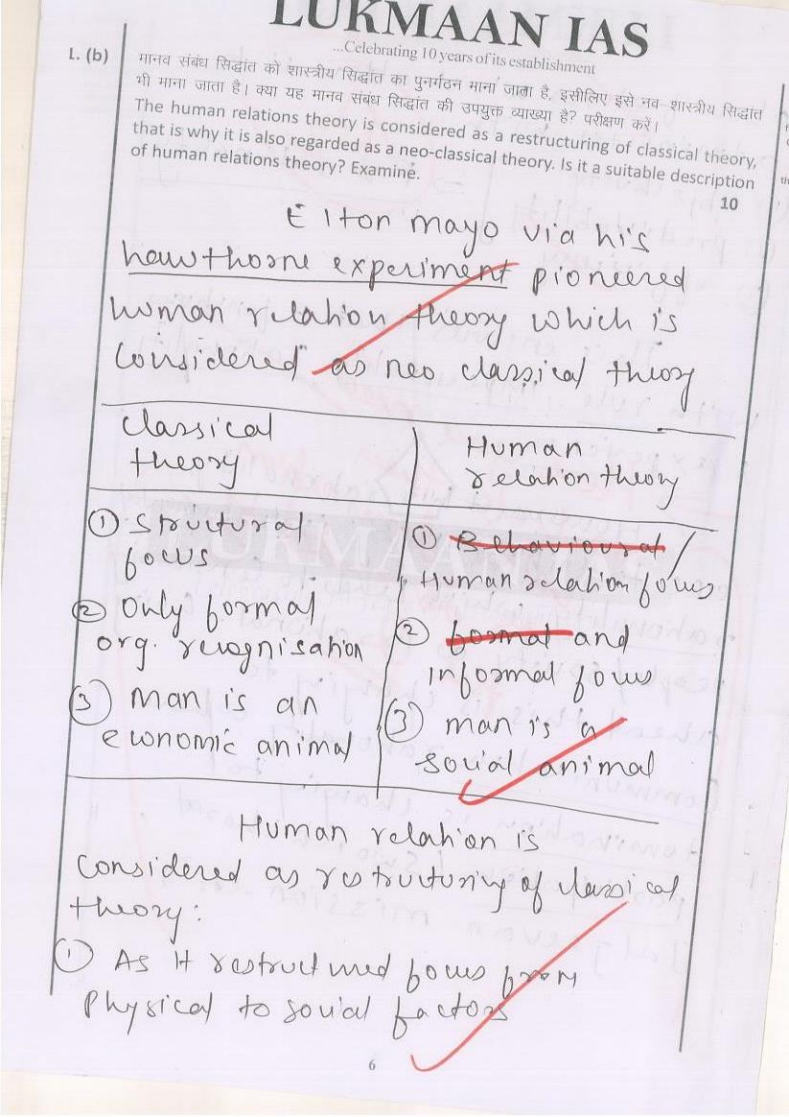 LUKMAAN IAS
...Celebrating 10 years of its establishment
1. (b)
मानव संबंध सिद्धांत को शास्त्रीय सिद्धांत का पुनर्गठन माना जाता है, इसीलिए इसे नव शास्त्रीय सिद्धांत
भी माना जाता है। क्या यह मानव संबंध सिद्धांत की उपयुक्त व्याख्या है? परीक्षण करें।
The human relations theory is considered as a restructuring of classical theory,
that is why it is also regarded as a neo-classical theory. Is it a suitable description
of human relations theory? Examine.
10
Elton mayo via his
hawthorne experiment pioneered
human relation theory which is
considered as neo classical theory
Classical
theory
① Structural
focus
② Only formal
org. recognisation
③ man is an
economic animal
Human
relation theory
① Behavioural /
Human relation focus
② formal and
informal focus
③ man is a
social animal
Human relation is
considered as restructuring of classical
theory:
① As it restructured focus from
Physical to social factors
6
LUKMAAN IAS